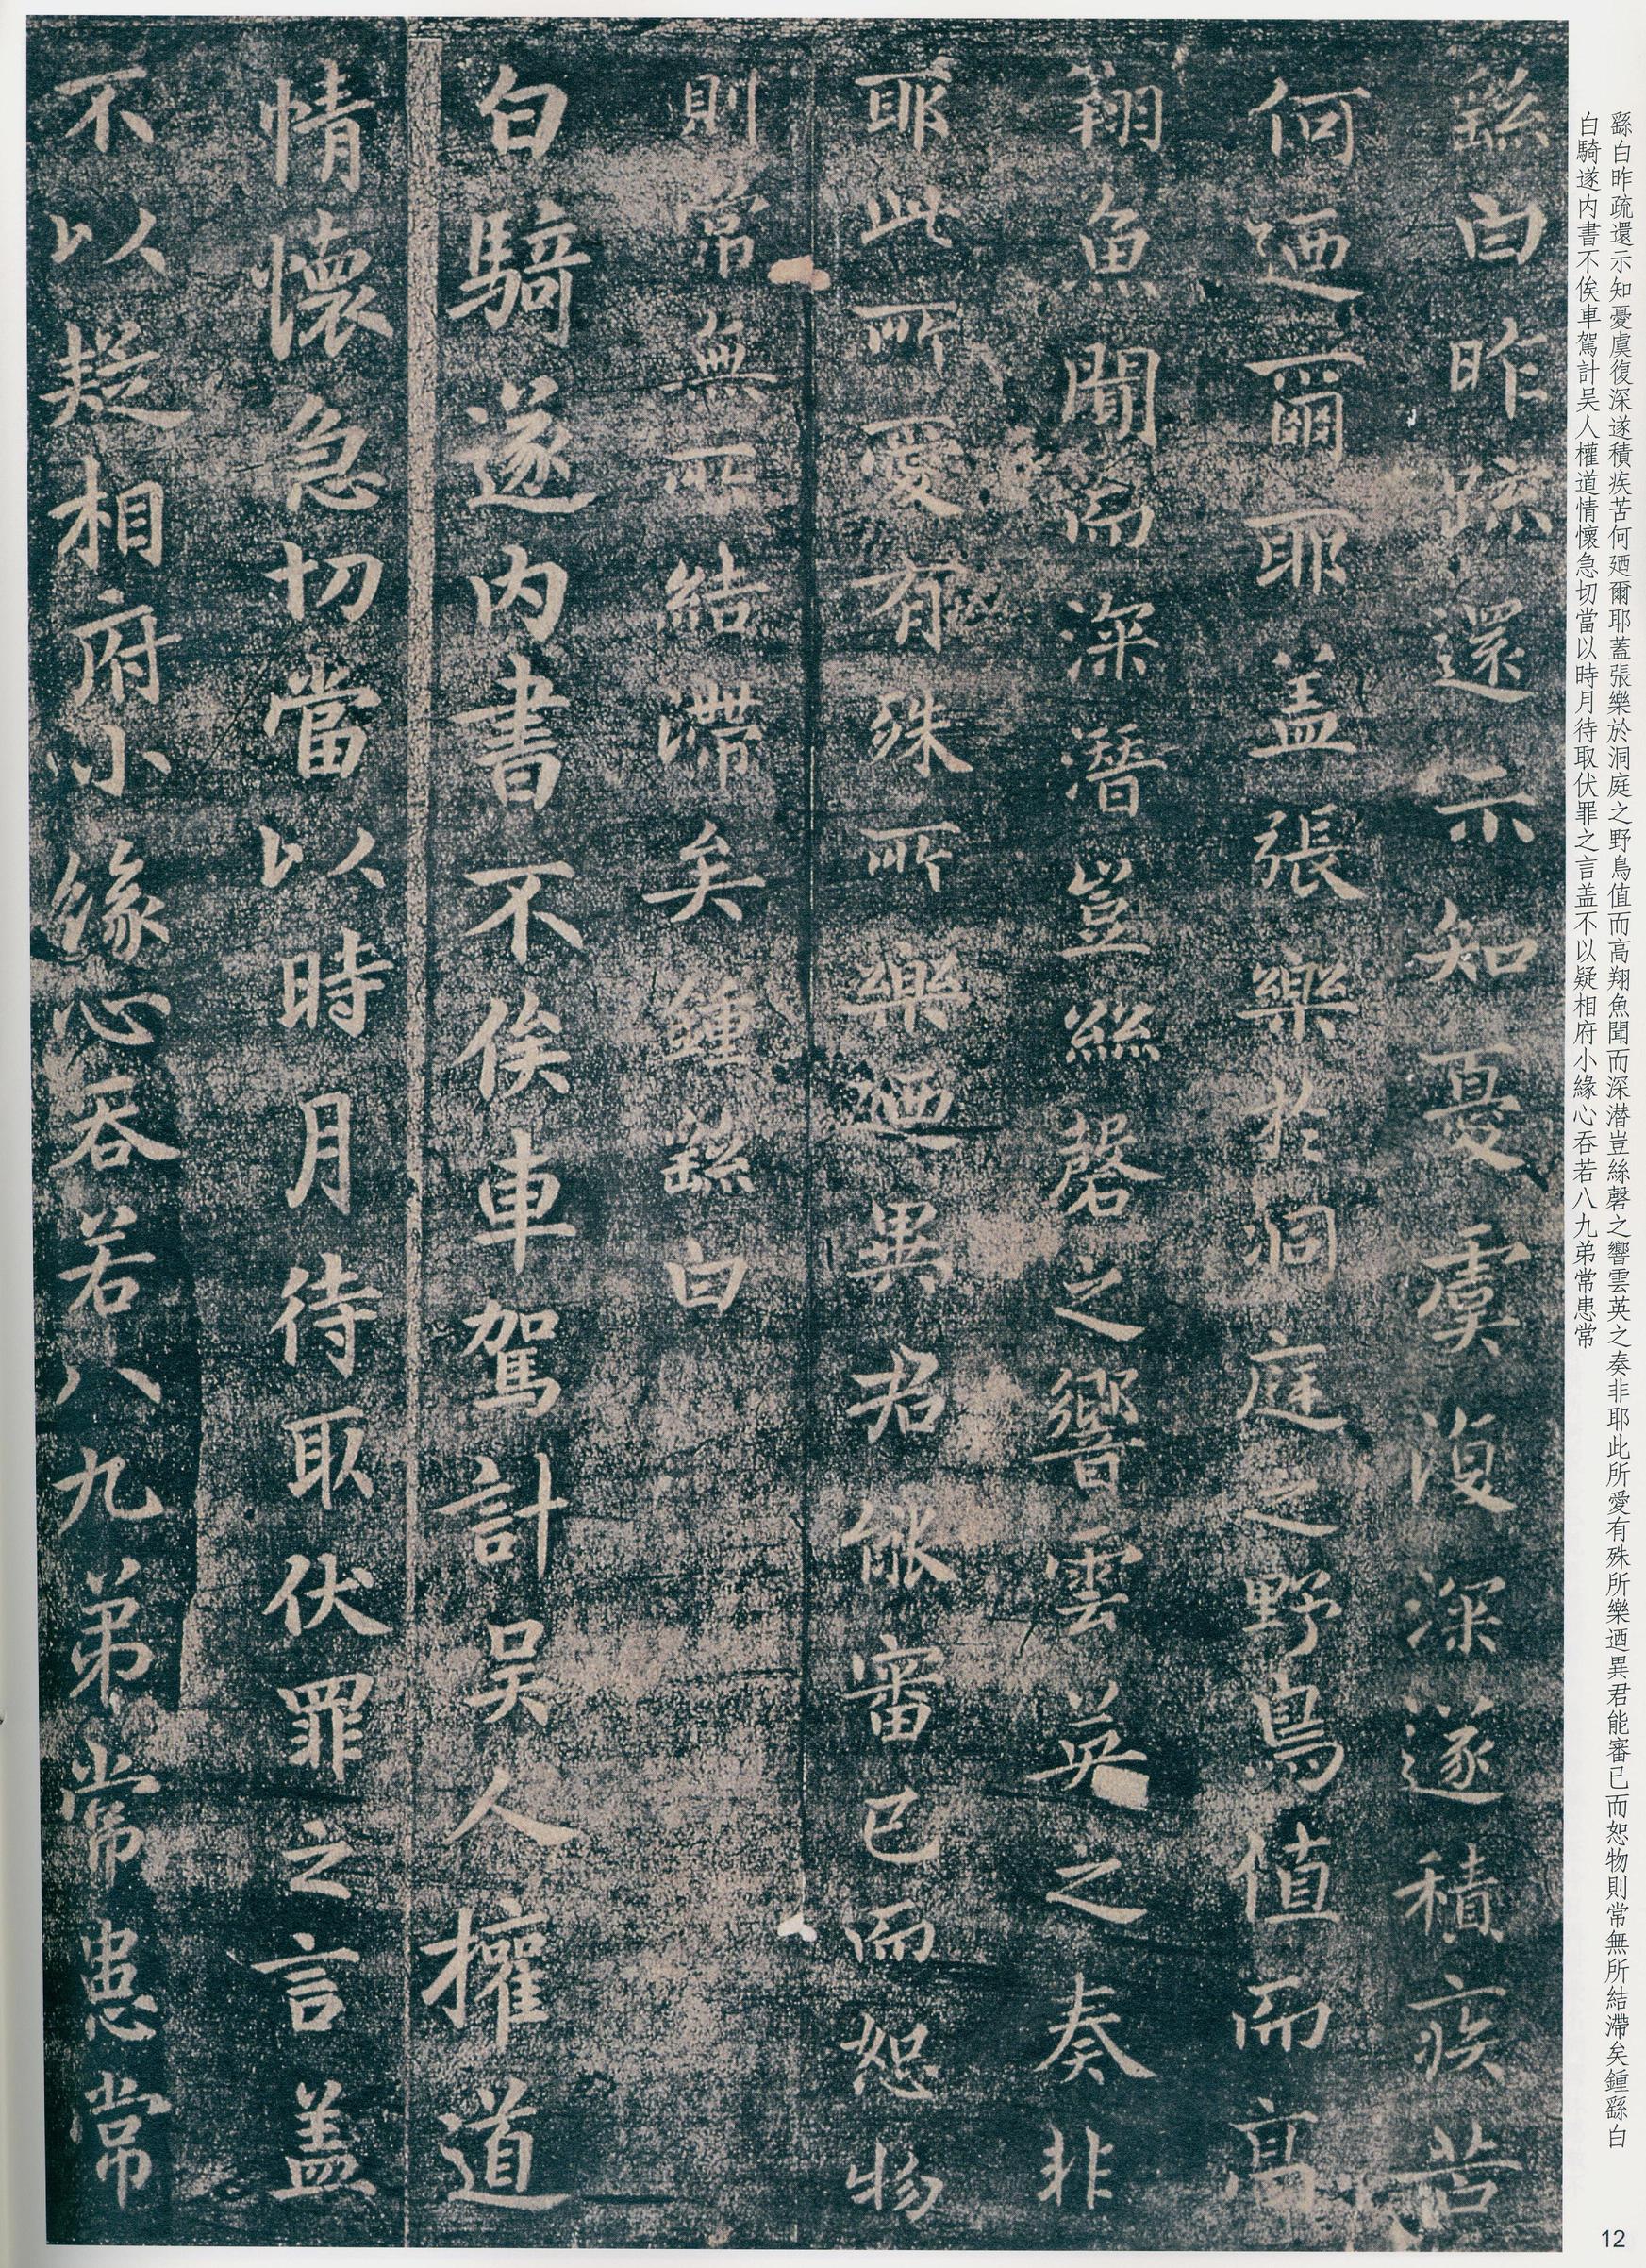 繇白昨疏還示知憂虞復深遂積疾苦何廼爾耶蓋張樂於洞庭之野鳥值而高翔魚聞而深潛豈絲磬之響雲英之奏非耶此所愛有殊所樂迺異君能審已而恕物則常無所結滯矣鍾繇白
白騎遂内書不俟車駕計吴人權道情懷急切當以時月待取伏罪之言盖不以疑相府小緣心吞若八九弟常患常
繇白昨疏還示知憂虞復深遂積疾苦
何迺爾耶盖張樂於洞庭之野鳥值而高
翔魚聞而深潛豈絲磬之響雲英之奏非
耶此所愛有殊所樂迺異君能審已而恕物
則常無所結滯矣鍾繇白
白騎遂内書不俟車駕計吴人權道
情懷急切當以時月待取伏罪之言盖
不以疑相府小緣心吞若八九弟常患常
12